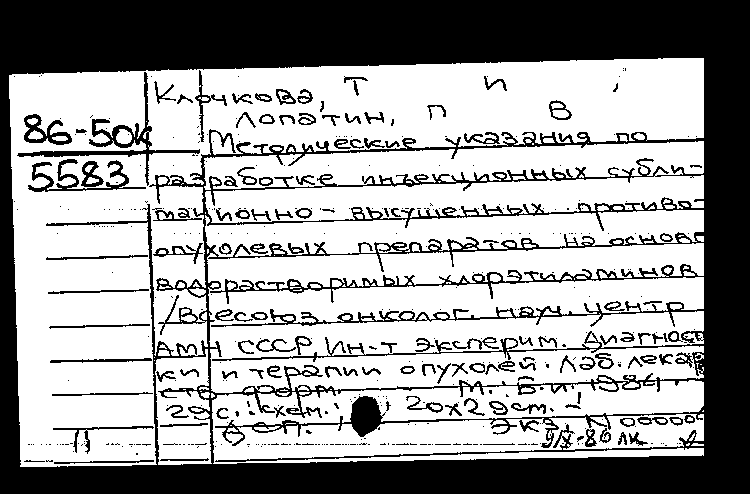 Клочкова, Т И,
Лопатин, П В
86-50к
5583
Методические указания по
разработке инъекционных субли-
мационно-высушенных противо-
опухолевых препаратов на основе
водорастворимых хлорэтиламинов
/Всесоюз. онколог. науч. центр
АМН СССР, Ин-т эксперим. Диагности
ки и терапии опухолей. Лаб. лекар
ств. форм. - М.: Б.и. 1984.
29 с.: схем.; 20х29 см. -
Деп. Экз. N 00000
11 9/X-86 лк